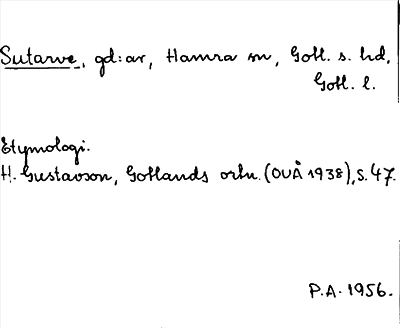 Sutarve, gd:ar, Hamra sn, Gotl. s. hd,
Gotl. l.
Etymologi.
H. Gustavson, Gotlands ortn. (OUÅ 1938), s. 47.
P.A. 1956.